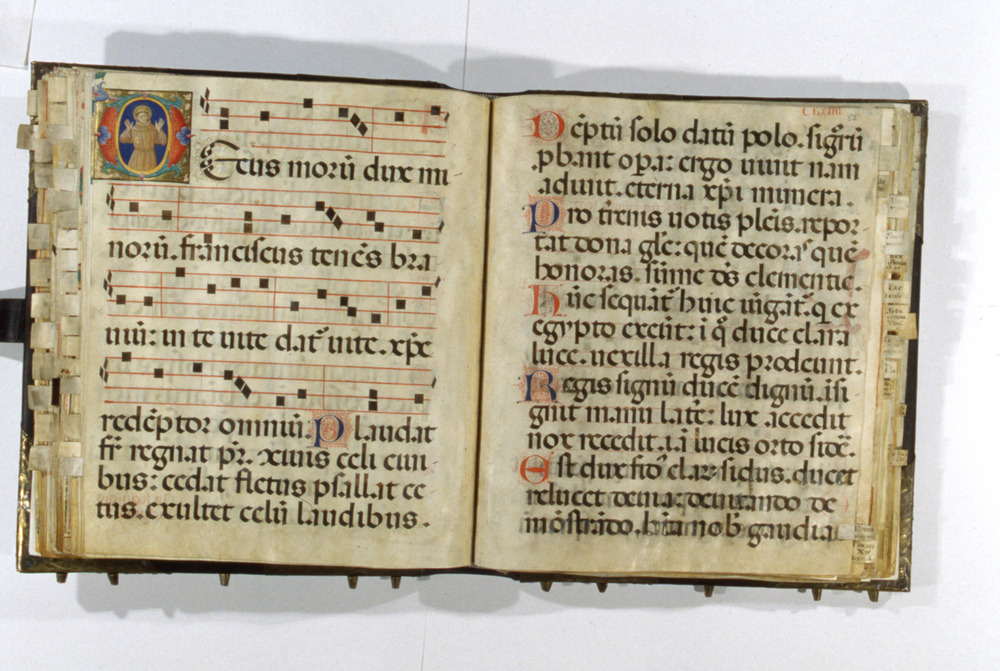 Decus morū dux mi
norū. franciscus tenēs bra
uiū: in te uite dat᷑ uite. xp̄e
redēptor omniū: Plaudat
fr̄ regnat pr̄. xiuis celi ciui
bus: cedat fletus psallat ce
tus. exultet celū laudibus.
CLXXIII
Dēptū solo datū polo. sigrū
pbant opa: ergo uiuit nam
adiuit. eterna xp̄i munera.
Pro t̄renis uotis plēis. repor
tat dona gl̄e: quē decoras quē
honoras. sūme d̄s clementie.
Hūc sequāt᷑ huic iūgāt᷑. q ex
egypto exeūt: ī q̄ duce clara
luce. uexilla regis prodeunt.
Regis signū ducē dignū. īsi
gnit manu latē: lux accedit
nox recedit. iā lucis orto sidē.
Est dux fit̄o clar sidus. ducet
relucet deuia: deuitando de
mōstrādo. bīa nob̄ gaudia